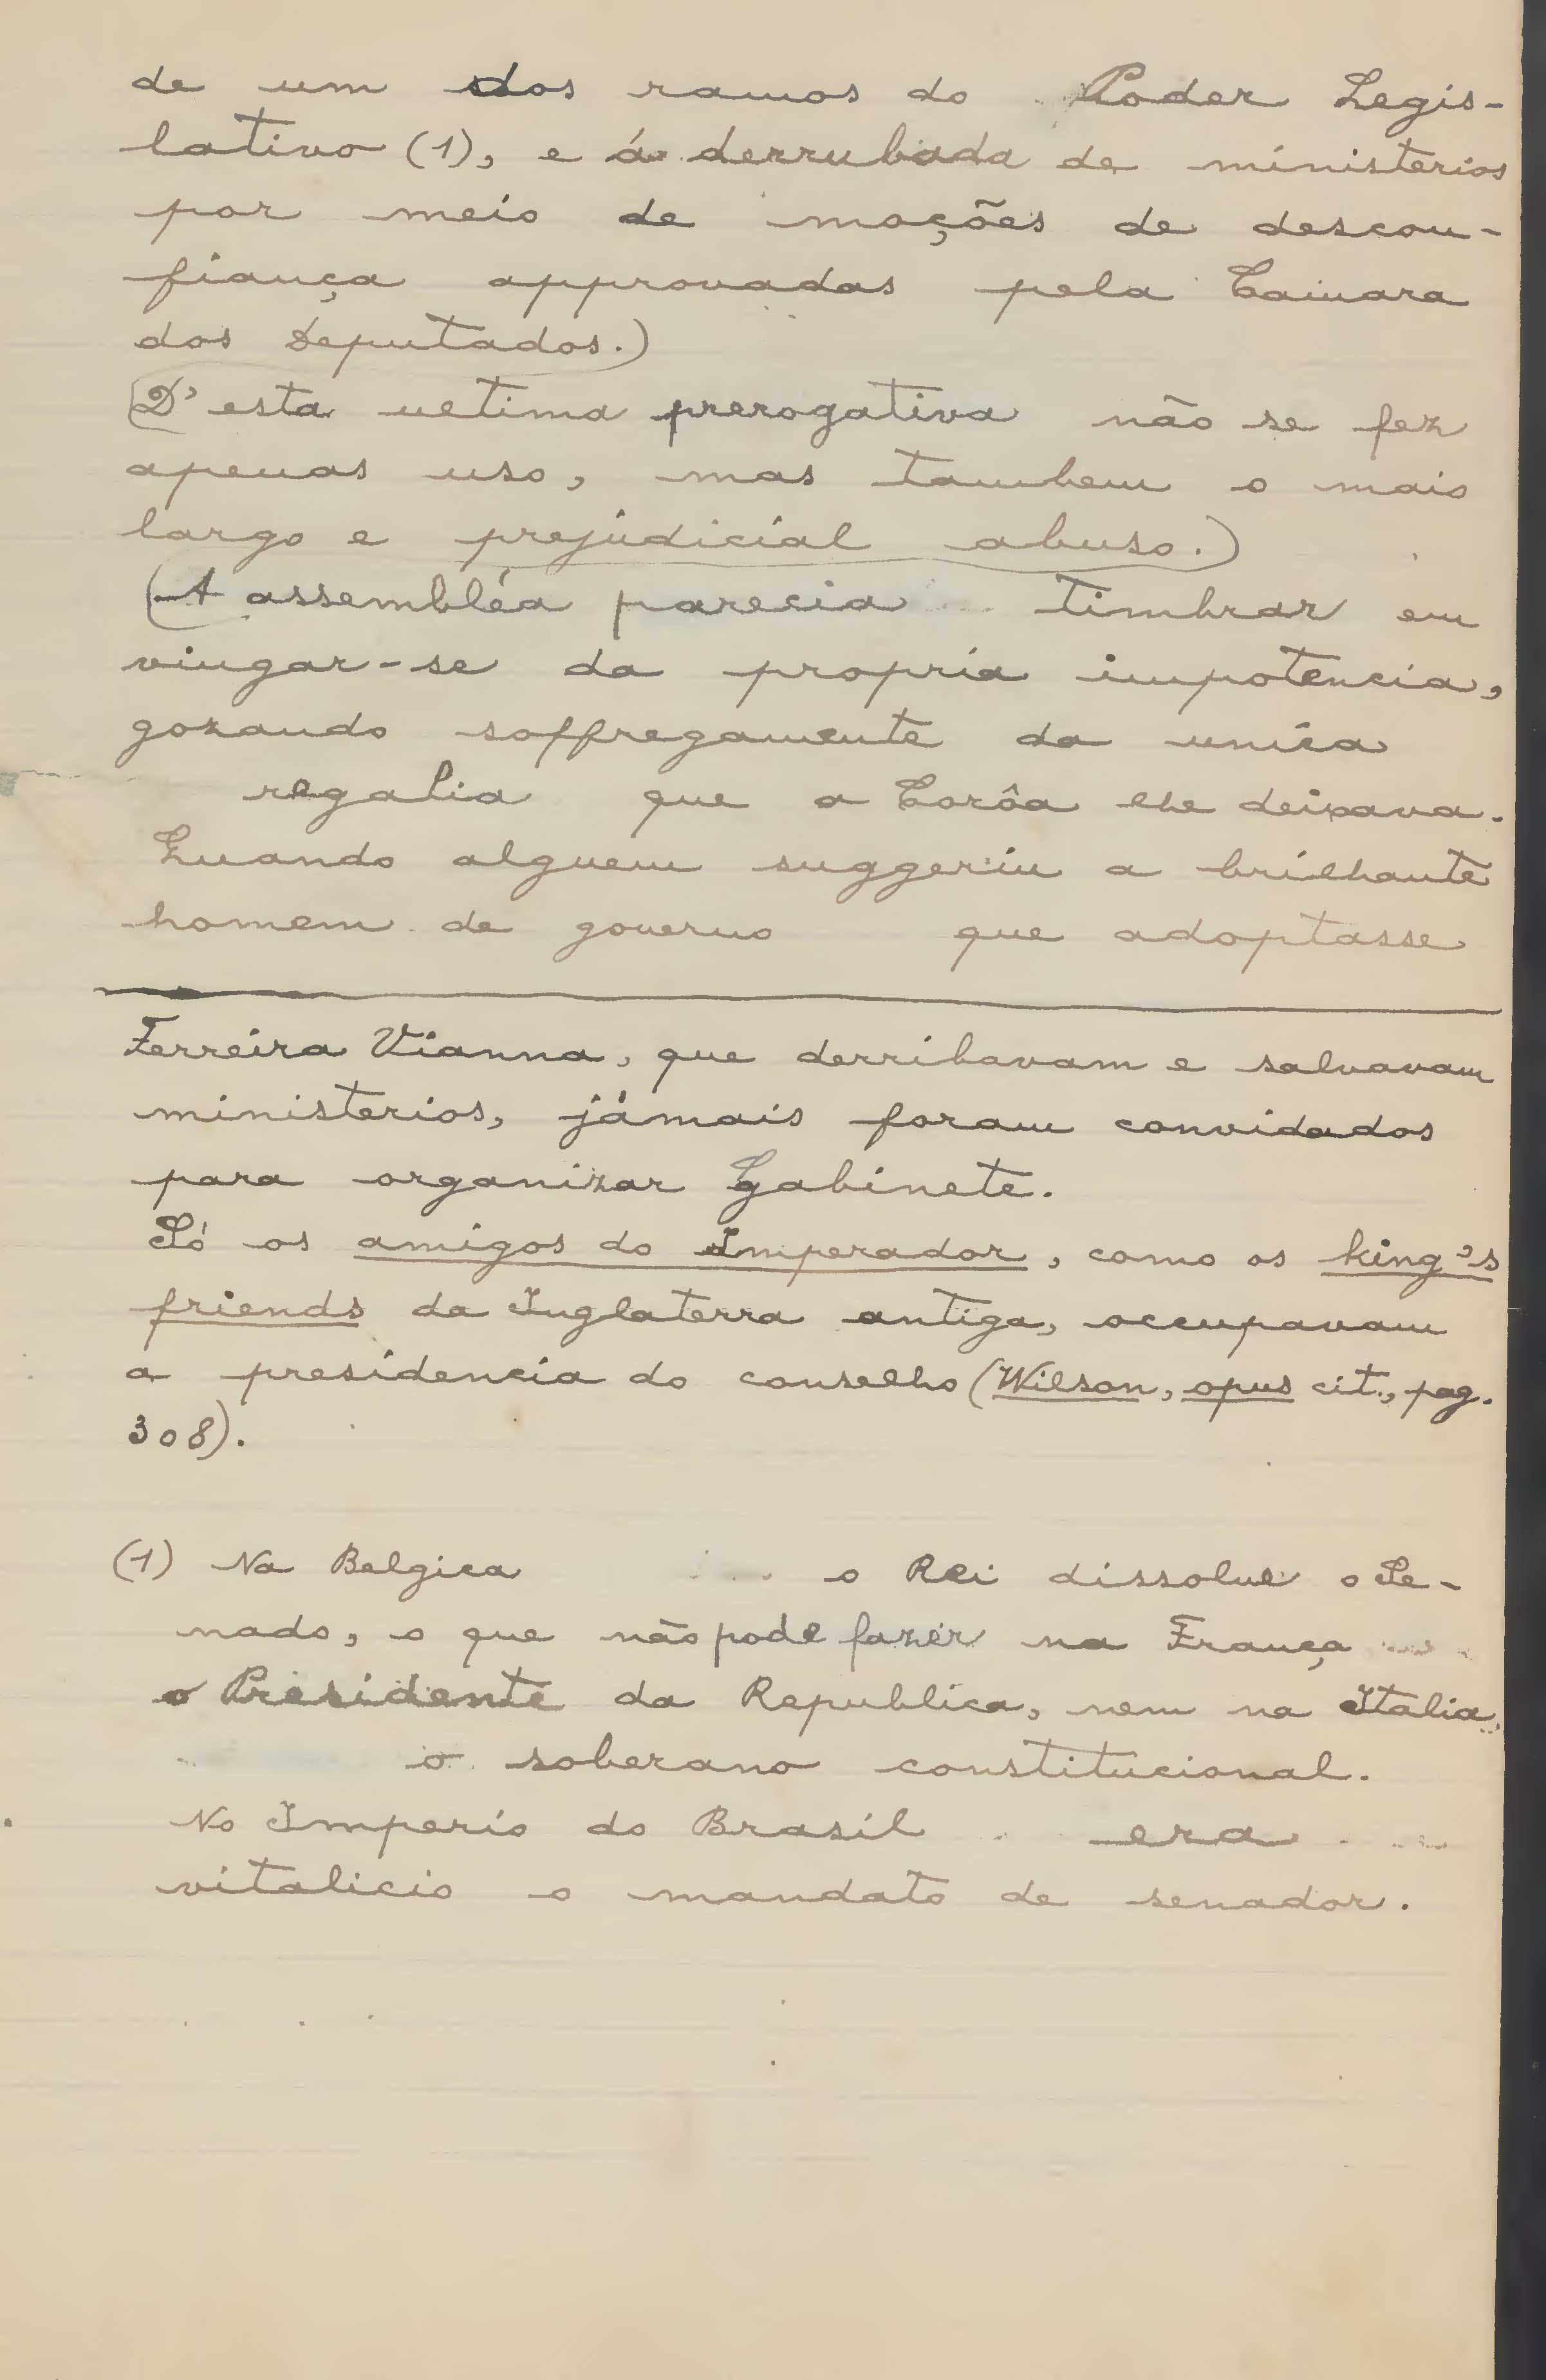 de um dos ramos do Poder Legis-
lativo (1), e á derrubada de ministerios
por meio de moções de descon-
fiança approvadas pela Camara
dos Deputados.)
(D'esta ultima prerogativa não se fez
apenas uso, mas tambem o mais
largo e prejudicial abuso.)
(A assembléa parecia timbrar em
vingar-se da propria impotencia,
gozando soffregamente da unica
regalia que a Corôa lhe deixava.
Quando alguem suggeriu a brilhante
homem de governo que adoptasse
Ferreira Vianna, que derribavam e salvavam
ministerios, jámais foram convidados
para organizar Gabinete.
Só os amigos do Imperador, como os king's
friends da Inglaterra antiga, occupavam
a presidencia do conselho (Wilson, opus cit., pag.
308).
(1) Na Belgica o Rei dissolve o Se-
nado, o que não pode fazer na França
o Presidente da Republica, nem na Italia,
o soberano constitucional.
No Imperio do Brasil era
vitalicio o mandato de senador.